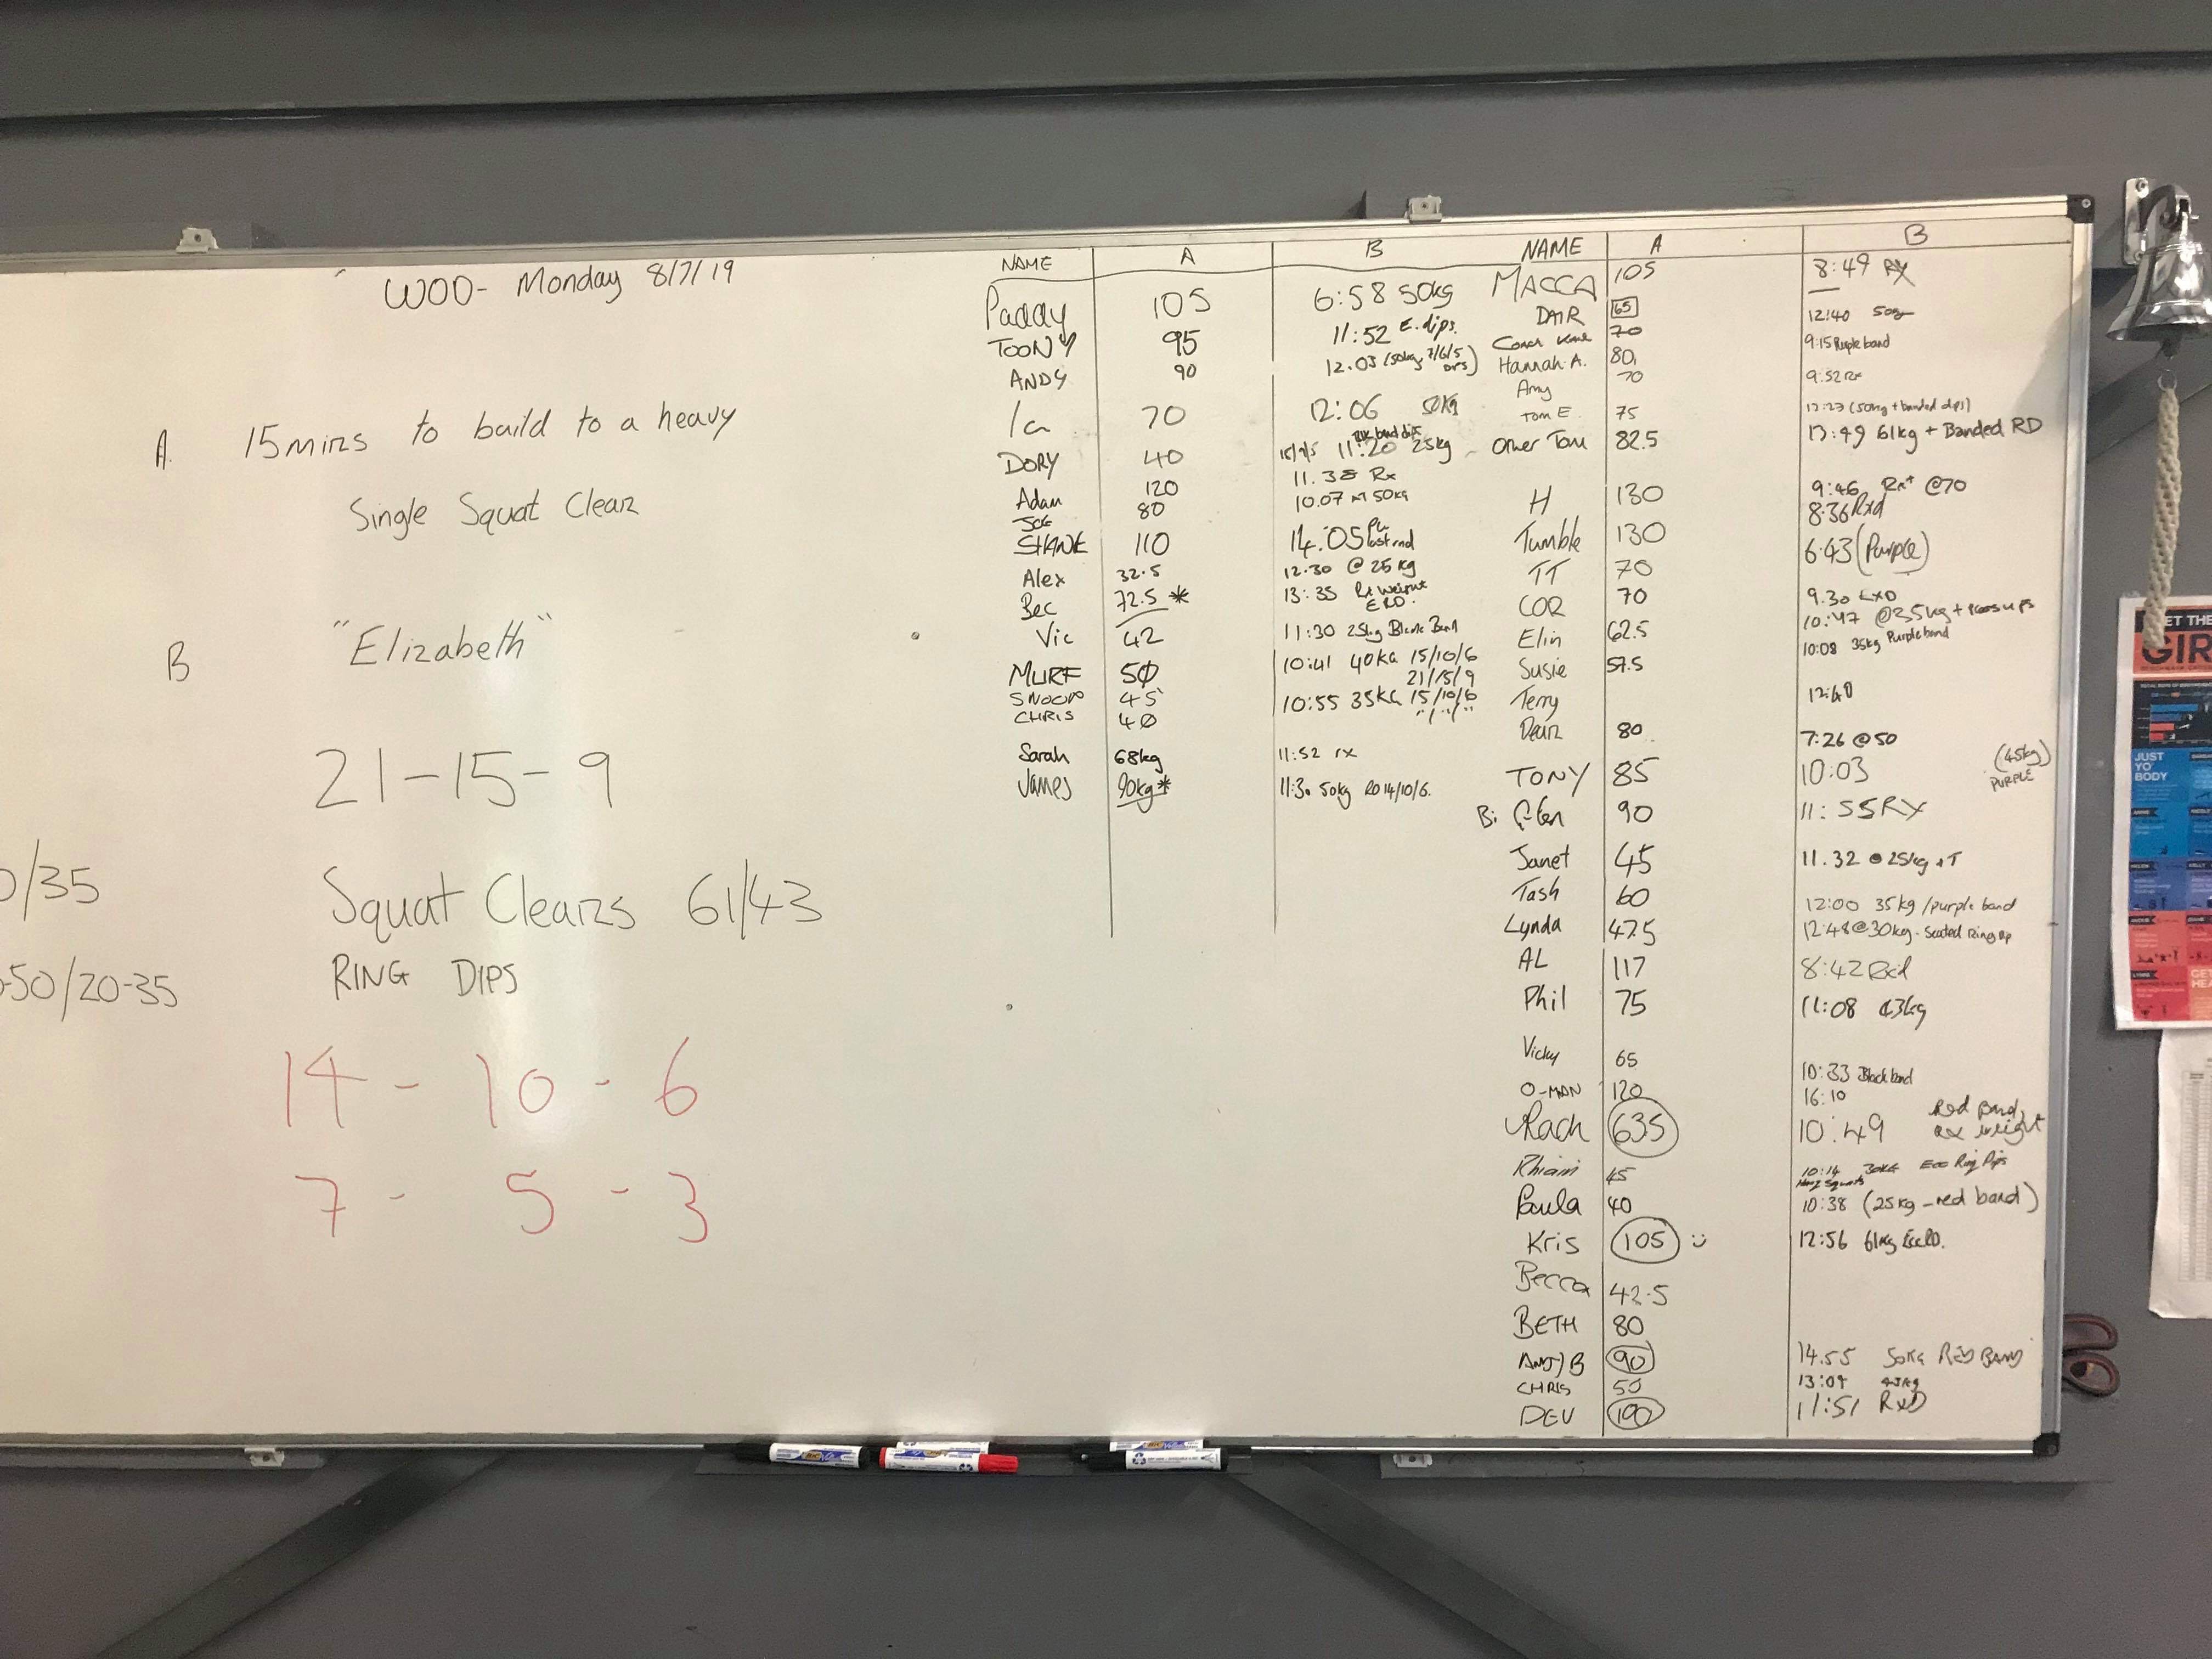 WOD- Monday 8/7/19
A. 15mins to build to a heavy
Single Squat Clean
B "Elizabeth"
21-15-9
Squat Cleans 61/43
RING DIPS
14 - 10 - 6
7 - 5 - 3
0/35
-50/20-35
NAME A B
Paddy 105 6:58 50kg
TOONY 95 11:52 E. dips.
ANDY 90 12.03 (50kg, 7/6/5
70 12:06 50kg
DORY 40 11:20 25kg
Adam 120 11.38 Rx
JOE 80 10.07 50kg
SHANE 110 14:05
last rnd
Alex 32.5 12:30 @ 25kg
Bec 72.5 * 13:35 Rx Weight
ERD.
Vic 42 11:30 25kg Black Band
MURF 50 10:41 40KG 15/10/6
21/15/9
SNOOP 45 10:55 35KG 15/10/6
CHRIS 40 "/"/"
Sarah 68kg 11:52 rx
James 90kg* 11:30 50kg RD 14/10/6.
NAME A B
MACCA 105 8:49 RX
DAIR 165 12:40
70 9:15 Purple band
Hannah A. 80 9:52 Rx
Amy 70
Tom E. 75 (50kg + banded dips)
Other Tom 82.5 13:49 61kg + Banded RD
H 130 9:46 Rx+ @70
Tumble 130 8:36 Rxd
TT 70 6:43 (Purple)
COR 70 9.30 RXD
Elin 62.5 10:47 @35kg +
Susie 57.5 10:08 35kg Purple band
Terry 12:40
80 7:26 @ 50
TONY 85 10:03 (45kg)
PURPLE
90 11:55 RX
Janet 45 11.32 @ 25kg
Tash 60 12:00 35kg/purple band
Lynda 47.5 12:48 @30kg - Seated Ring
AL 117 8:42 Rxd
Phil 75 11:08 43kg
Vicky 65 10:33 Black band
O-MAN 120 16:10
Rach 63.5 10:49 Red Band,
Rx weight
Rhian 45 10:14 30KG Ecc Ring Dips
Hang Squats
Paula 40 10:38 (25kg - red band)
Kris 105 :) 12:56 61kg EccRD.
Becca 42.5
BETH 80
90 14.55 50KG RED BAND
CHRIS 50 13:09 43kg
DEV 100 11:51 RxD
GET THE
GIR
JUST
YO'
BODY